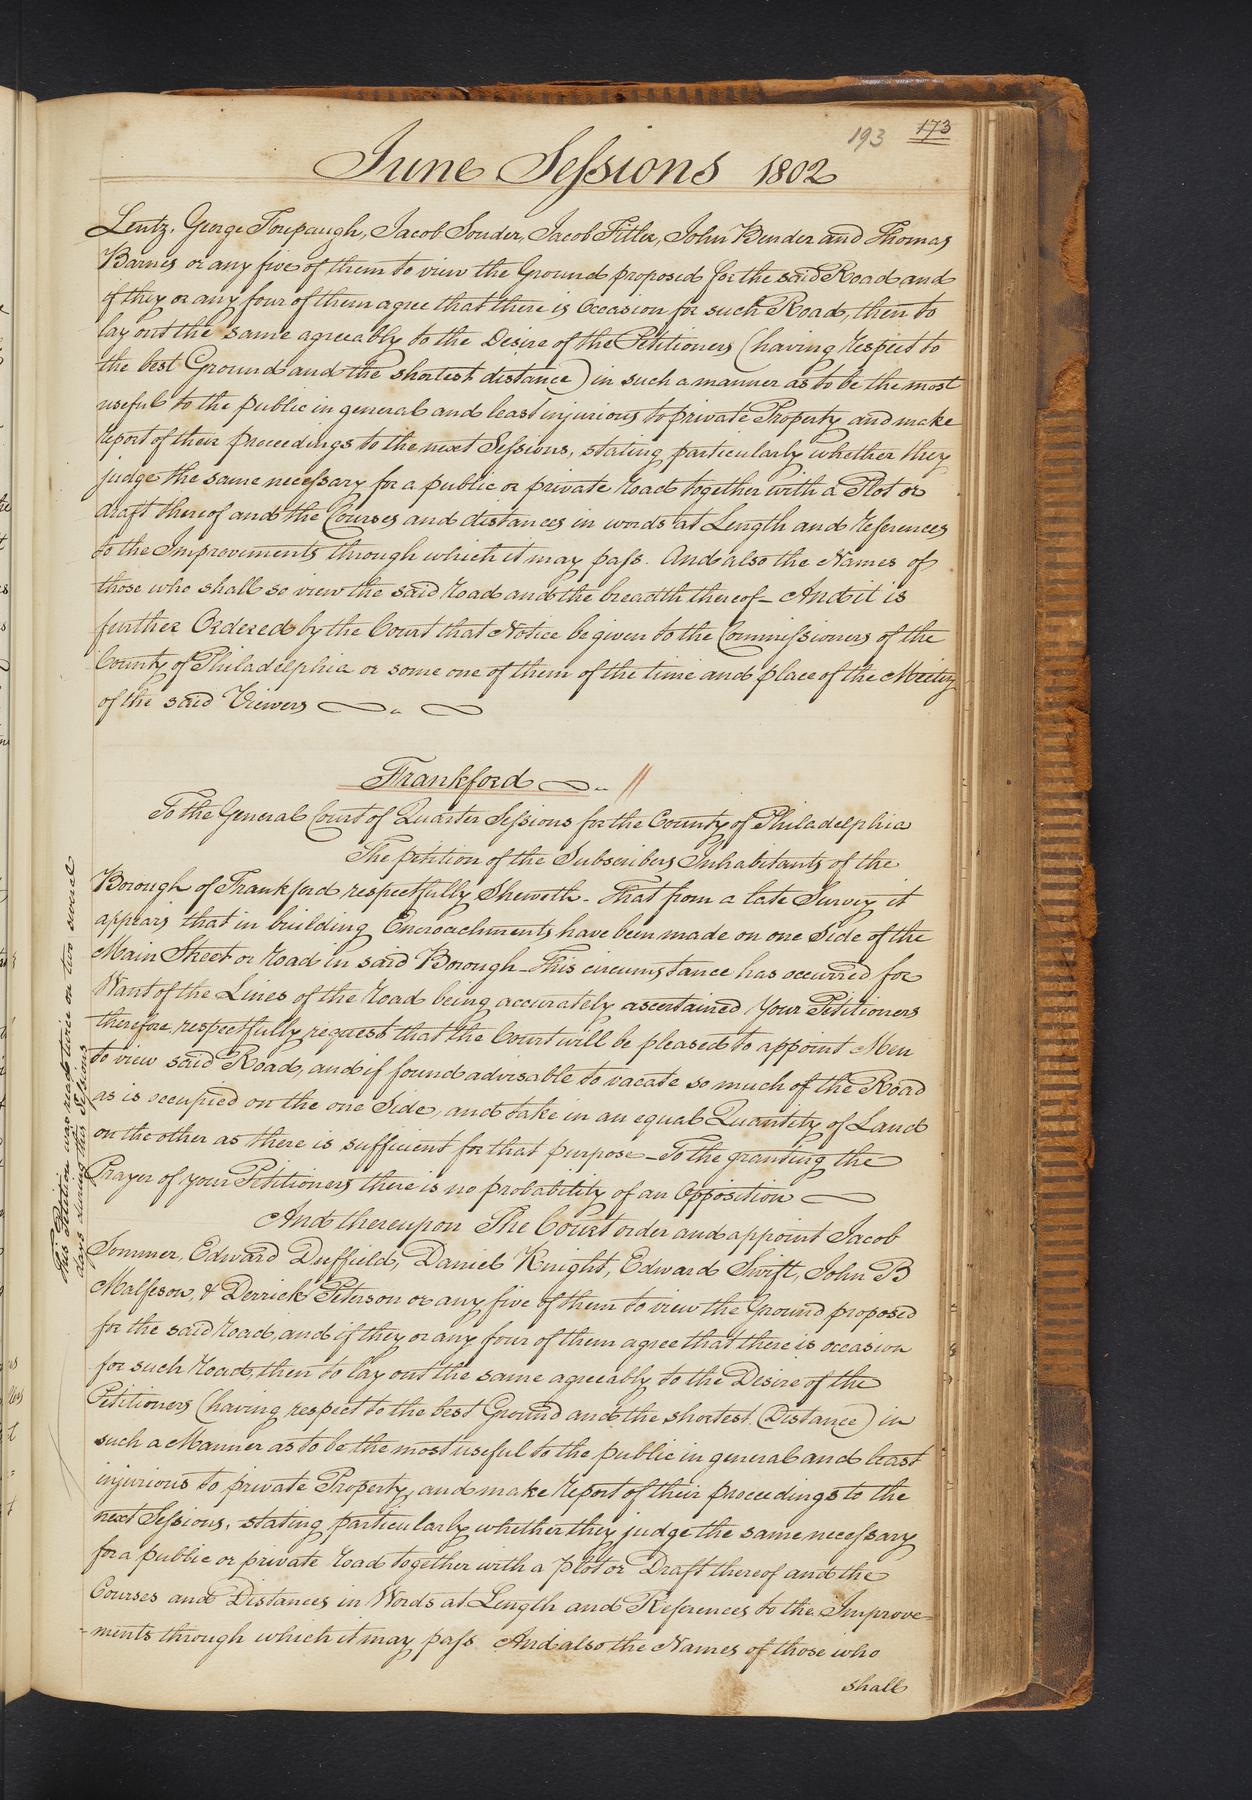 193 173
June Sessions 1802
Lentz, George Forepaugh, Jacob Souder, Jacob Fitler, John Bender and Thomas
Barnes or any five of them to view the Ground proposed for the said Road and
if they or any four of them agree that there is Occasion for such Road, then to
lay out the same agreeably to the Desire of the Petitioners (having Respect to
the best Ground and the shortest distance) in such a manner as to be the most
useful to the public in general and least injurious to private Property and make
report of their proceedings to the next Sessions, stating particularly whether they
judge the same necessary for a public or private road together with a Plot or
draft thereof and the Courses and distances in words at Length and References
to the Improvements through which it may pass. And also the Names of
those who shall so view the said road and the breadth thereof - And it is
further Ordered by the Court that Notice be given to the Commissioners of the
County of Philadelphia or some one of them of the time and place of the Meeting
of the said Viewers
Frankford
To the General Court of Quarter Sessions for the County of Philadelphia
The petition of the Subscribers Inhabitants of the
Borough of Frankford respectfully Sheweth - That from a late Survey it
appears that in building Encroachments have been made on one Side of the
Main Street or road in said Borough - This circumstance has occurred for
Want of the Lines of the road being accurately ascertained, Your Petitioners
therefore respectfully request that the Court will be pleased to appoint Men
to view said Road, and if found advisable to vacate so much of the Road
as is occupied on the one Side, and take in an equal Quantity of Land
on the other as there is sufficient for that purpose - To the granting the
Prayer of your Petitioners there is no probability of an Opposition
And thereupon The Court order and appoint Jacob
Sommer, Edward Duffield, Daniel Knight, Edward Swift, John B
Malfeson, & Derrick Peterson or any five of them to view the Ground proposed
for the said road, and if they or any four of them agree that there is occasion
for such road, then to lay out the same agreeably to the Desire of the
Petitioners (having respect to the best Ground and the shortest Distance) in
such a Manner as to be the most useful to the public in general and least
injurious to private Property, and make report of their proceedings to the
next Sessions, stating particularly whether they judge the same necessary
for a public or private road together with a plot or Draft thereof and the
Courses and Distances in Words at Length and References to the Improve-
-ments through which it may pass. And also the Names of those who
shall
This Petition was read twice on two several
days during this Sessions